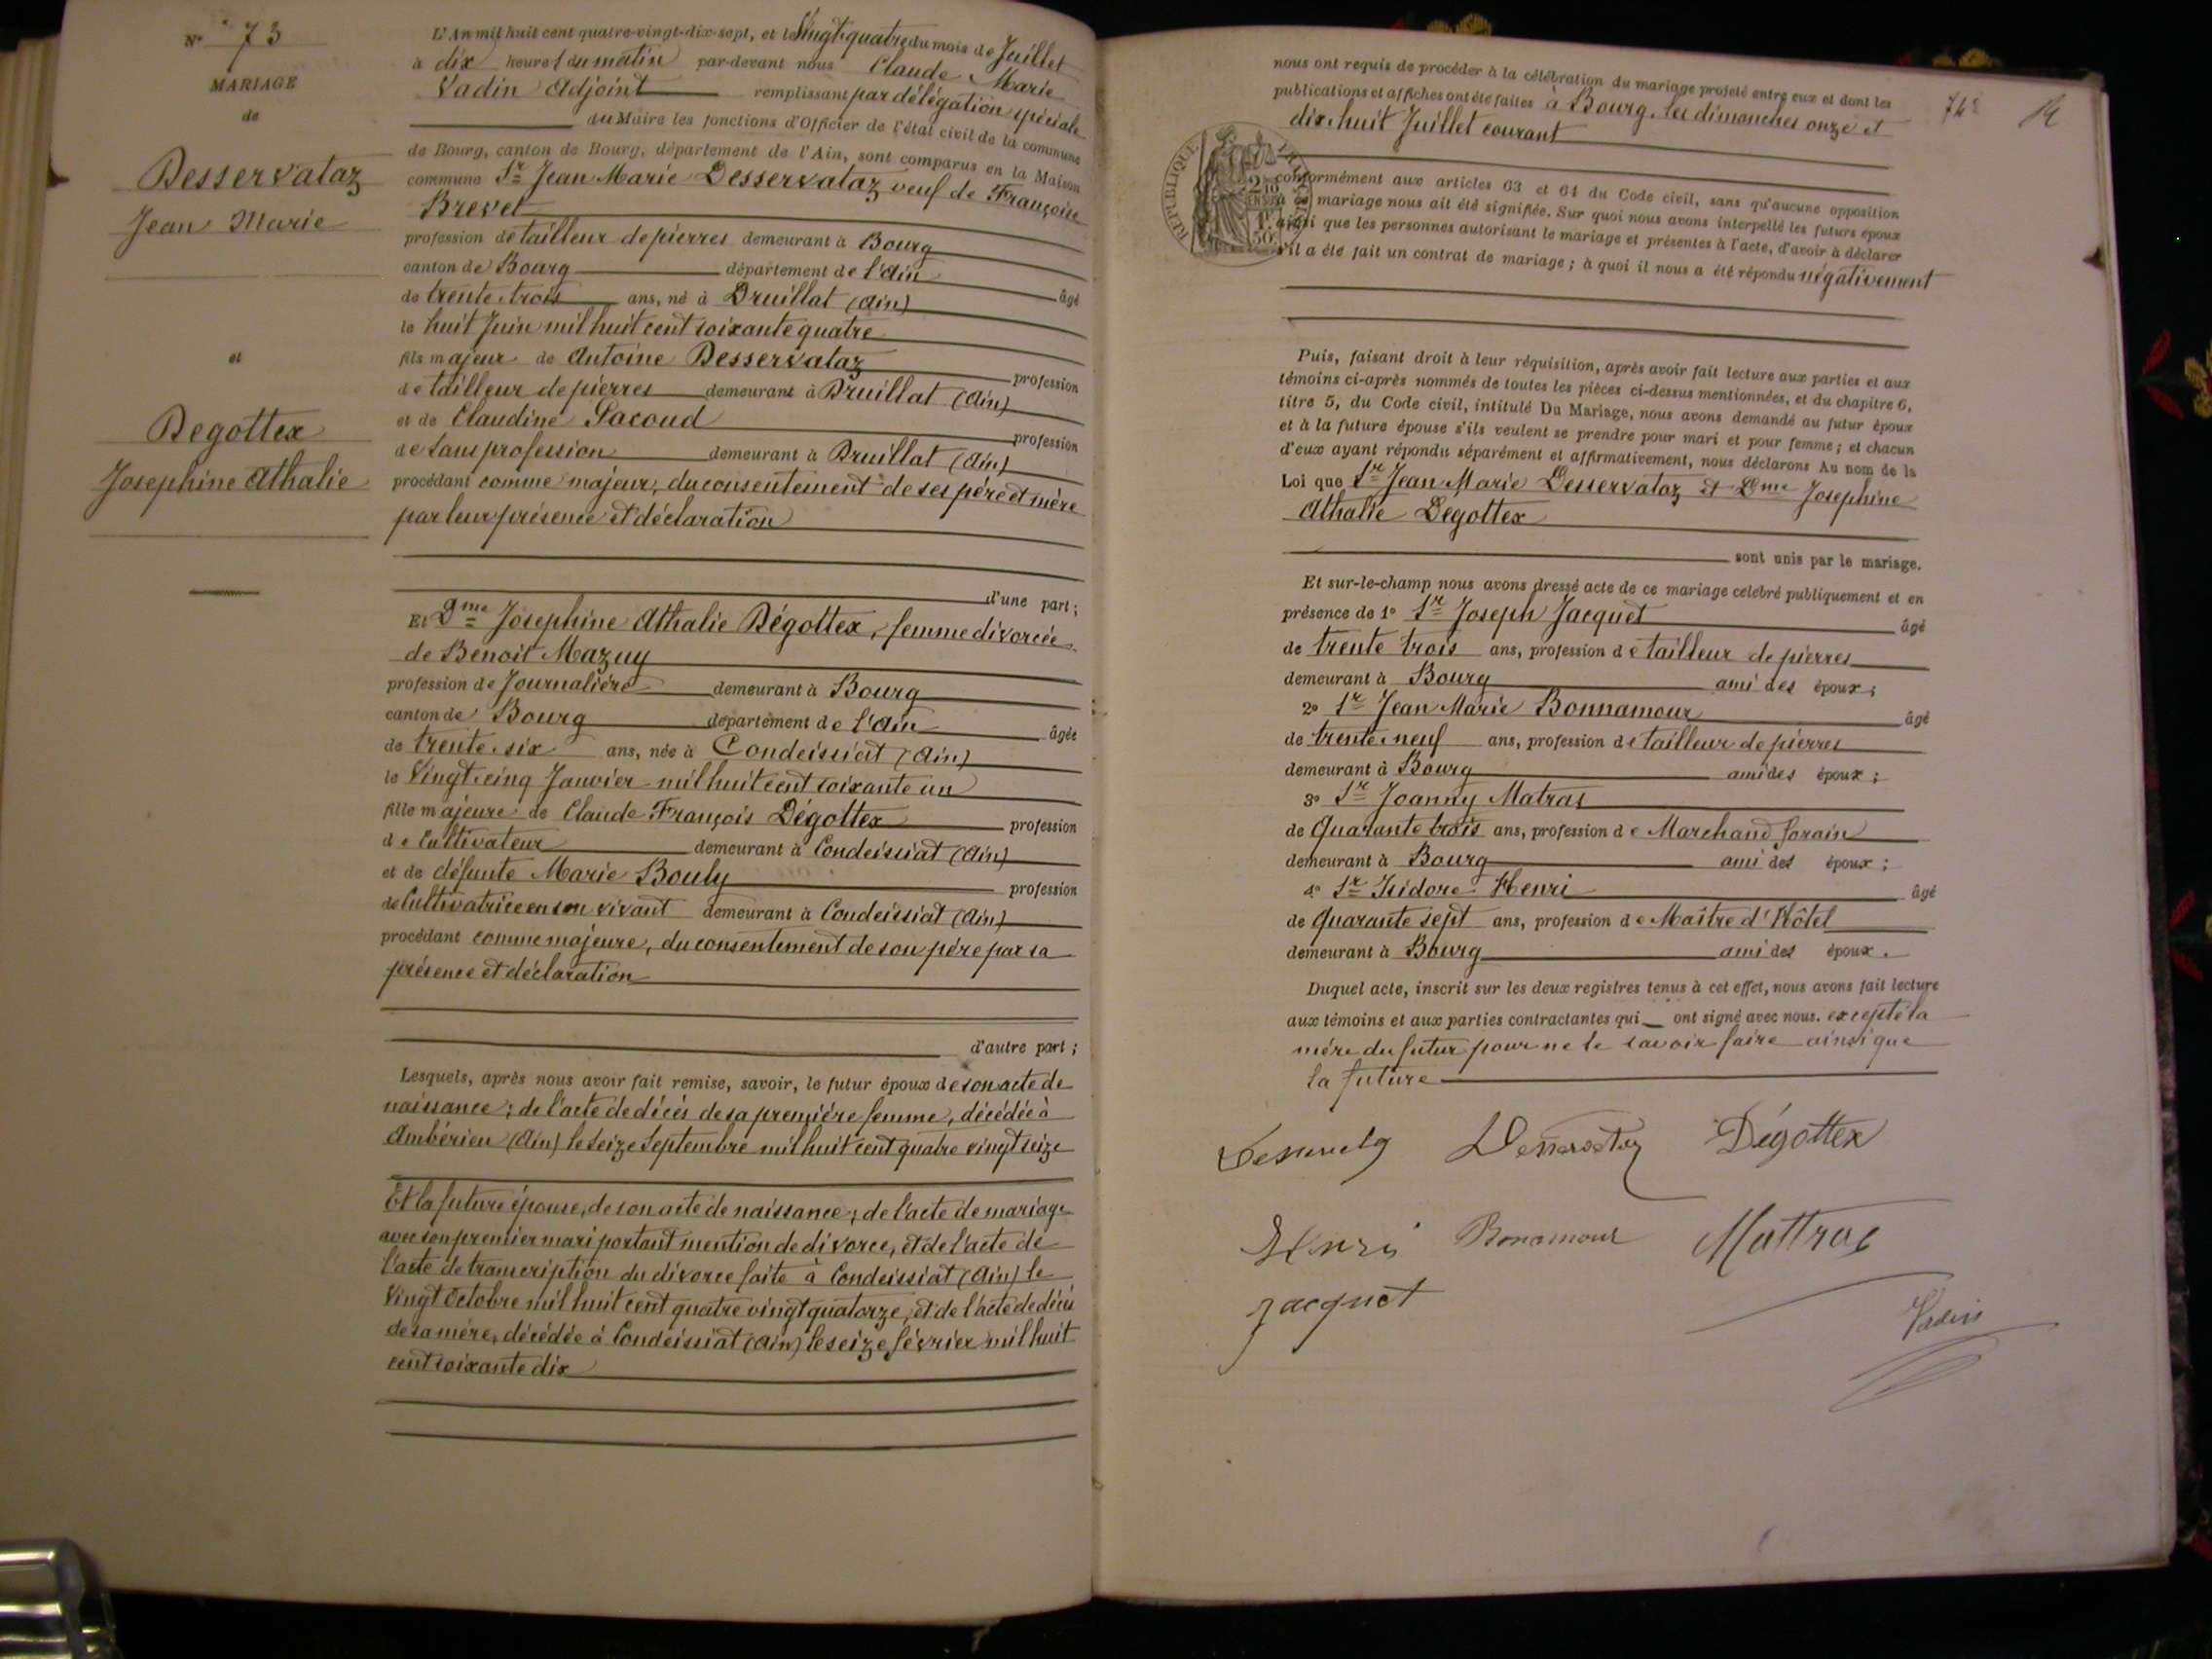 N° 73
MARIAGE
de
Desservataz
Jean Marie
et
Degottex
Josephine Athalie
L'An mil huit cent quatre-vingt-dix-sept, et le Vingt quatre du mois de Juillet
à dix heures du matin par-devant nous Claude Marie
Vadin Adjoint remplissant par délégation spéciale
du Maire les fonctions d'Officier de l'état civil de la commune
de Bourg, canton de Bourg, département de l'Ain, sont comparus en la Maison
commune Sr Jean Marie Desservataz veuf de Françoise
Brevet
profession de tailleur de pierres demeurant à Bourg
canton de Bourg département de l'Ain âgé
de trente trois ans, né à Druillat (Ain)
le huit Juin mil huit cent soixante quatre
fils majeur de Antoine Desservataz profession
de tailleur de pierres demeurant à Druillat (Ain)
et de Claudine Lacoud profession
de sans profession demeurant à Druillat (Ain)
procédant comme majeur, du consentement de ses père et mère
par leur présence et déclaration
d'une part;
Et Dme Josephine Athalie Dégottex, femme divorcée
de Benoit Mazuy
profession de Journalière demeurant à Bourg
canton de Bourg département de l'Ain âgée
de trente six ans, née à Condeissiat (Ain)
le Vingt cinq Janvier mil huit cent soixante un
fille majeure de Claude François Dégottex profession
de Cultivateur demeurant à Condeissiat (Ain)
et de défunte Marie Bouly profession
de Cultivatrice en son vivant demeurant à Condeissiat (Ain)
procédant comme majeure, du consentement de son père par sa
présence et déclaration
d'autre part;
Lesquels, après nous avoir fait remise, savoir, le futur époux de son acte de
naissance; de l'acte de décès de sa première femme, décédée à
Ambérieu (Ain) le Seize Septembre mil huit cent quatre vingt seize
Et la future épouse, de son acte de naissance; de l'acte de mariage
avec son premier mari portant mention de divorce, et de l'acte de
l'acte de transcription du divorce faite à Condeissiat (Ain) le
Vingt Octobre mil huit cent quatre vingt quatorze, et de l'acte de décès
de sa mère, décédée à Condeissiat (Ain) le seize février mil huit
cent soixante dix
74
nous ont requis de procéder à la célébration du mariage projeté entre eux et dont les
publications et affiches ont été faites à Bourg, les dimanches onze et
dix-huit Juillet courant
REPUBLIQUE FRANÇAISE
conformément aux articles 63 et 64 du Code civil, sans qu'aucune opposition
à ce mariage nous ait été signifiée. Sur quoi nous avons interpellé les futurs époux
ainsi que les personnes autorisant le mariage et présentes à l'acte, d'avoir à déclarer
s'il a été fait un contrat de mariage; à quoi il nous a été répondu négativement
Puis, faisant droit à leur réquisition, après avoir fait lecture aux parties et aux
témoins ci-après nommés de toutes les pièces ci-dessus mentionnées, et du chapitre 6,
titre 5, du Code civil, intitulé Du Mariage, nous avons demandé au futur époux
et à la future épouse s'ils veulent se prendre pour mari et pour femme; et chacun
d'eux ayant répondu séparément et affirmativement, nous déclarons Au nom de la
Loi que Sr Jean Marie Desservataz et Dme Josephine
Athalie Degottex
sont unis par le mariage.
Et sur-le-champ nous avons dressé acte de ce mariage célébré publiquement et en
présence de 1° Sr Joseph Jacquet âgé
de trente trois ans, profession de tailleur de pierres
demeurant à Bourg ami des époux;
2° Sr Jean Marie Bonnamour âgé
de trente neuf ans, profession de tailleur de pierres
demeurant à Bourg ami des époux;
3° Sr Joanny Matras
de Quarante trois ans, profession de Marchand forain
demeurant à Bourg ami des époux;
4° Sr Isidore Henri âgé
de Quarante sept ans, profession de Maître d'Hôtel
demeurant à Bourg ami des époux.
Duquel acte, inscrit sur les deux registres tenus à cet effet, nous avons fait lecture
aux témoins et aux parties contractantes qui ont signé avec nous. excepté la
mère du futur pour ne le savoir faire ainsi que
la future
Desservataz Dégottex
Henri Bonamour Mattras
Jacquet
Vadin